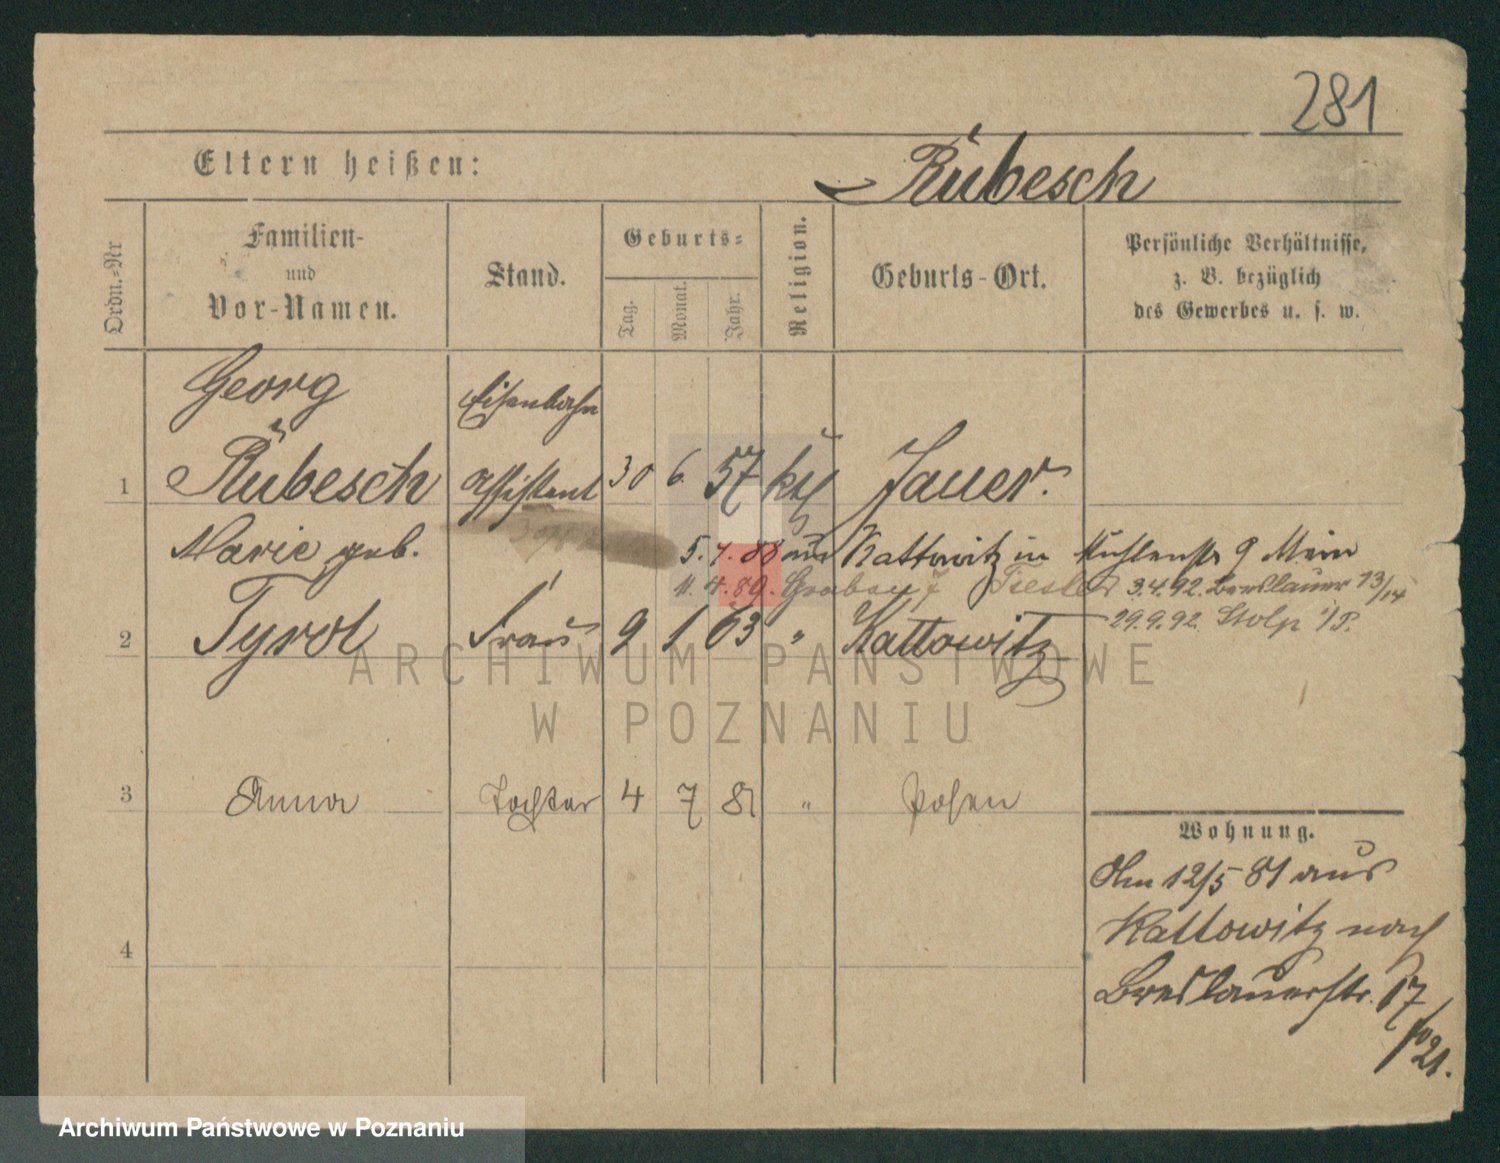 281
Eltern heißen:
Rübesch
Ordn.-Nr
Familien-
und
Vor-Namen.
Stand.
Geburts-
Tag.
Monat.
Jahr.
Religion.
Geburts-Ort.
Persönliche Verhältnisse,
z. B. bezüglich
des Gewerbes u. s. w.
Georg Eisenbahn
1 Rübesch Assistent 30 6. 57 kth Jauer.
Marie geb. 5. 7. 88 aus Kattowitz in Mühlenstr 9 Mein
11. 4. 89. 3.4.92. Breslauer 13/14
2 Tyrol Frau 9 1 63 " Kattowitz 29.9.92 Stolp i/P.
3 Anna Tochter 4 7 81 " Posen
Wohnung.
Am 12/5 81 aus
4 Kattowitz nach
Breslauerstr. 17
ARCHIWUM PAŃSTWOWE
W POZNANIU
Archiwum Państwowe w Poznaniu